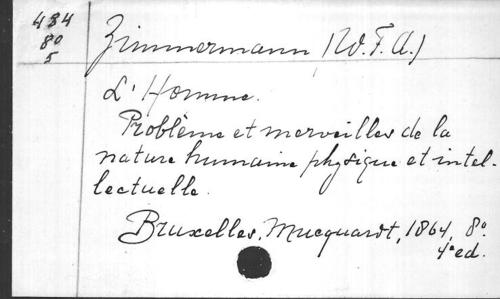 434
80
5
Zimmermann (W. F. A.)
L'Homme.
Problème et merveilles de la
nature humaine physique et intel-
lectuelle.
Bruxelles, Mucquardt, 1864, 8º
4ª ed.